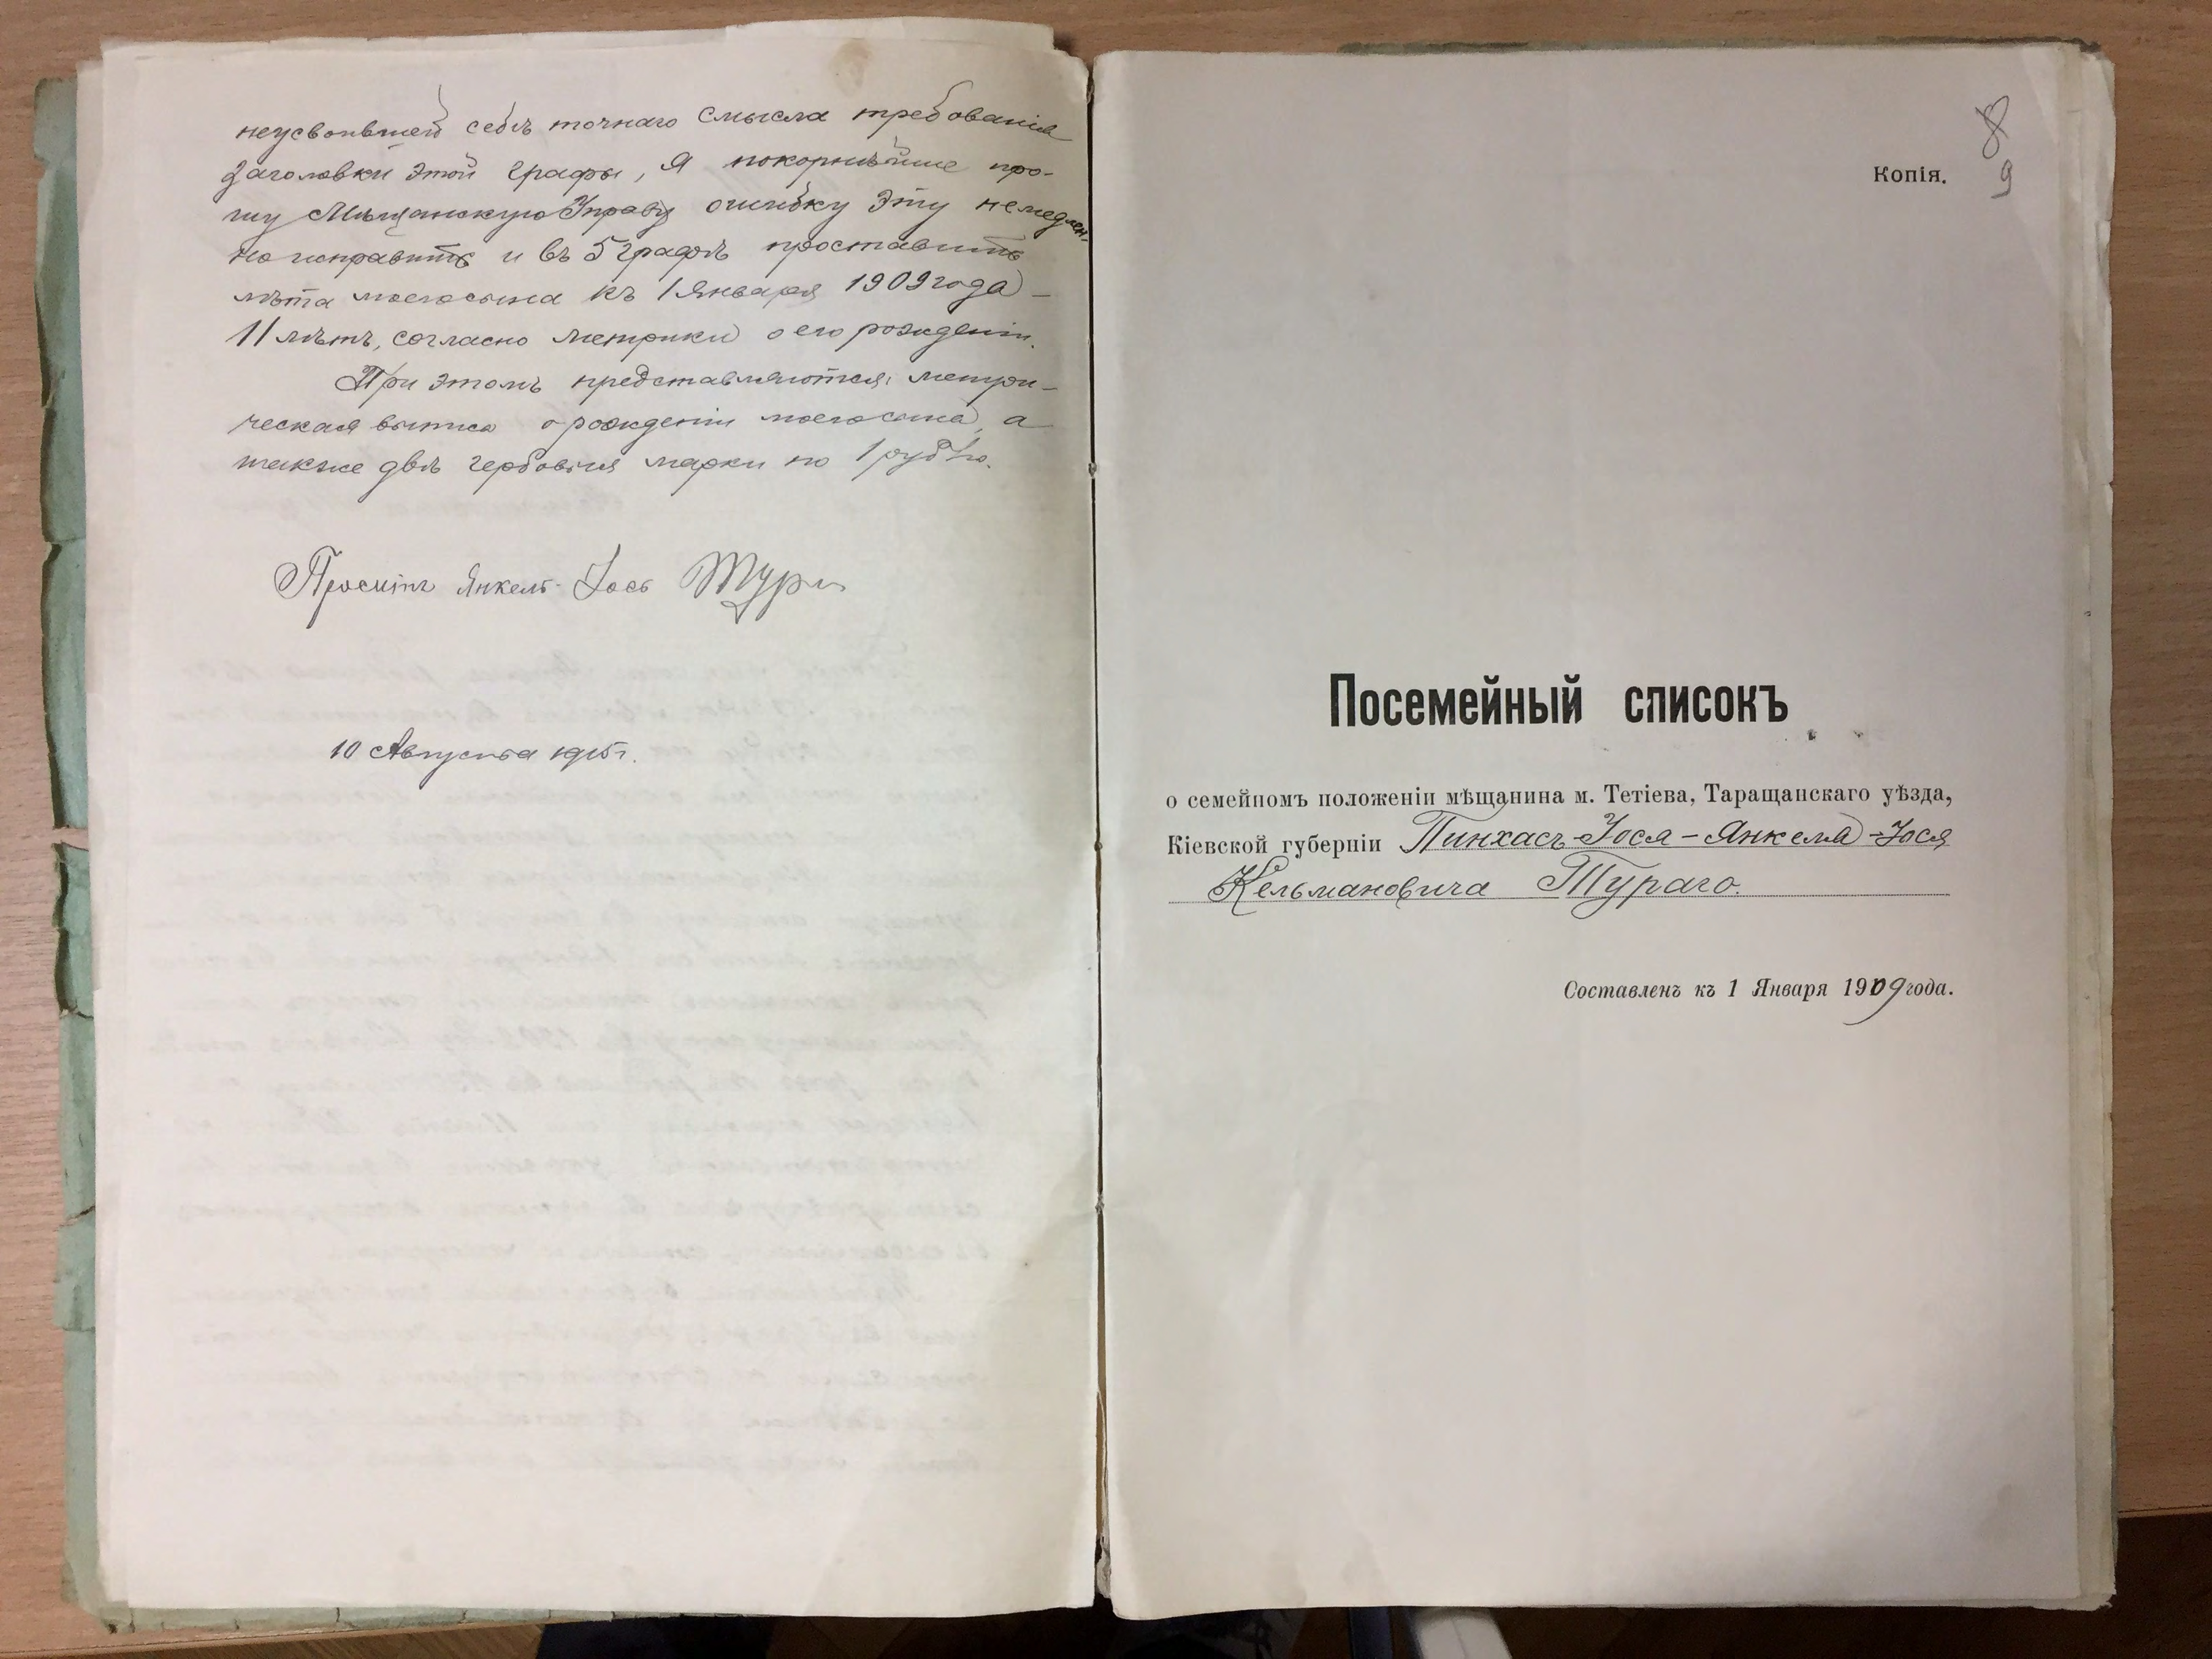 неусвоившей себѣ точнаго смысла требованія
заголовки этой графы, я покорнѣйше про-
шу Мѣщанскую Управу ошибку эту немедлен-
но исправить и въ 5 графѣ проставить
лѣта моего сына къ 1 Января 1909 года —
11 лѣтъ, согласно метрики о его рожденіи.
При этомъ представляются: метри-
ческая выпись о рожденіи моего сына, а
также двѣ гербовыя марки по 1 рублю.
Проситъ Янкель-Іось Тури
10 Августа 1915 г.
8
9
Копія.
Посемейный списокъ
о семейномъ положеніи мѣщанина м. Тетіева, Таращанскаго уѣзда,
Кіевской губерніи Пинхасъ-Іося-Янкеля-Іося
Кельмановича Тураго.
Составленъ къ 1 Января 1909 года.